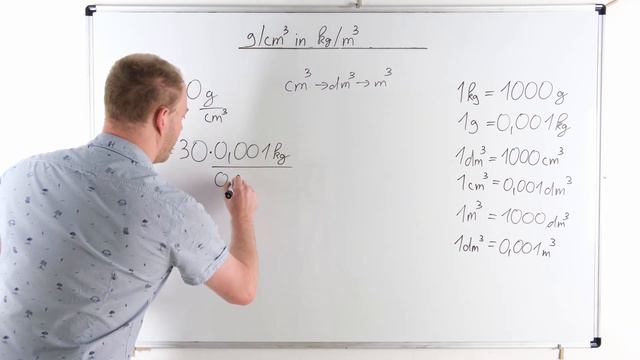 g/cm³ in kg/m³
cm³ → dm³ → m³
0 g
cm³
30·0,001 kg
0,
1kg = 1000 g
1g = 0,001 kg
1dm³ = 1000 cm³
1cm³ = 0,001 dm³
1m³ = 1000 dm³
1dm³ = 0,001 m³